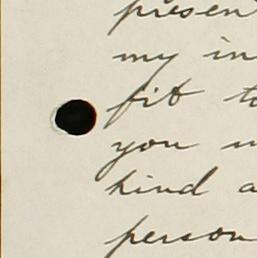 presen
my in
fit to
you
kind a
person